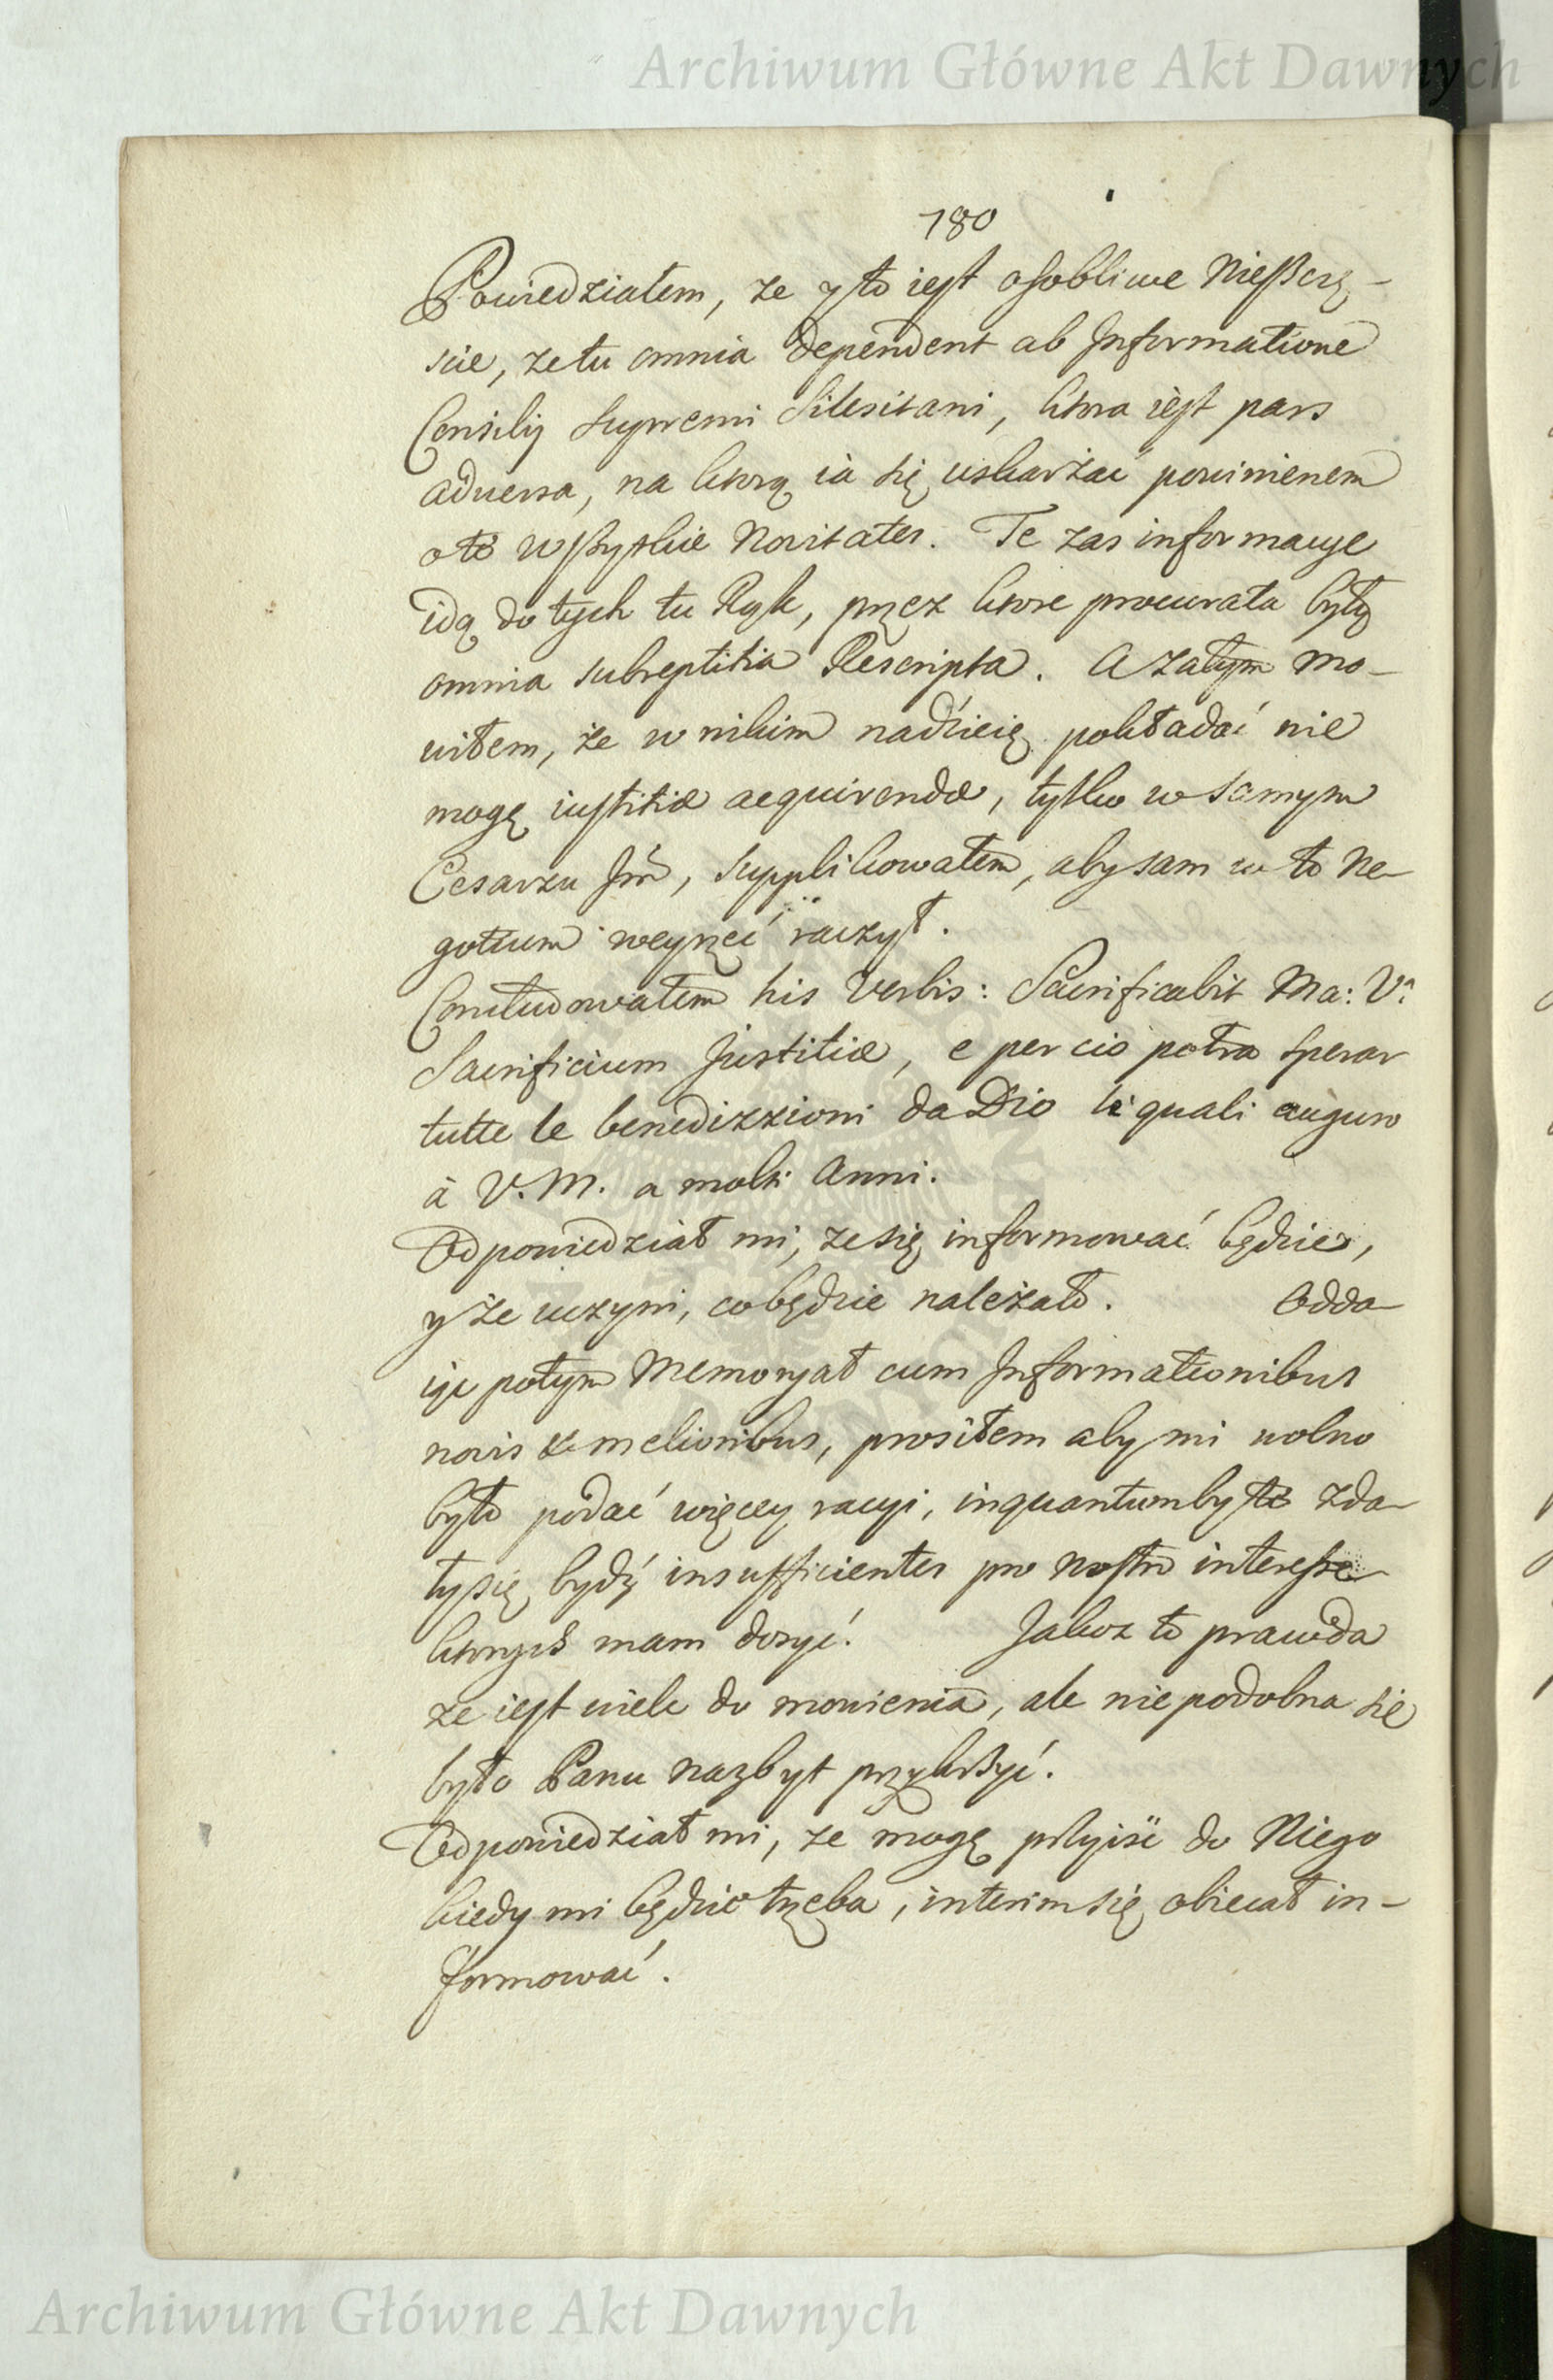 Archiwum Główne Akt Dawnych
180
Powiedziałem, ze y to iest osobliwe Nießczę-
scie, ze tu omnia dependent ab Informatione
Consilij Supremi Silesitani, ktora iest pars
adversa, na ktorą ia się uskarżać powinienem
o te wßystkie Novitates. Te zas informacye
idą do tych tu Rąk, przez ktore procurata były
omnia subreptitia Rescripta. A zatym mo-
wiłem, że w nikim nadzieię pokładać nie
mogę iustitiæ acquirendæ, tylko w samym
Cesarzu Jm̃, supplikowałem, aby sam w to Ne-
gotium weyrzeć raczył.
Concludowałem his Verbis: Sacrificabit Ma: Vª
Sacrificium Justitiæ, e per cio potra sperar
tutte le benedizzioni da Dio le quali auguro
à V. M. a molti Anni.
Odpowiedział mi, ze się informować będzie,
y że uczyni, co będzie należało. Odda-
iąc potym Memoryał cum Informationibus
novis & melioribus, prosiłem aby mi wolno
było podać więcey racyi, inquantum by te zda-
ły się bydź insufficientes pro nostro interesse
ktorych mam dosyć. Jakoz to prawda
ze iest wiele do mowienia, ale niepodobna się
było Panu nazbyt przykrzyć.
Odpowiedział mi, ze mogę przyiść do Niego
kiedy mi będzie trzeba, interim się obiecał in-
formować.
Archiwum Główne Akt Dawnych